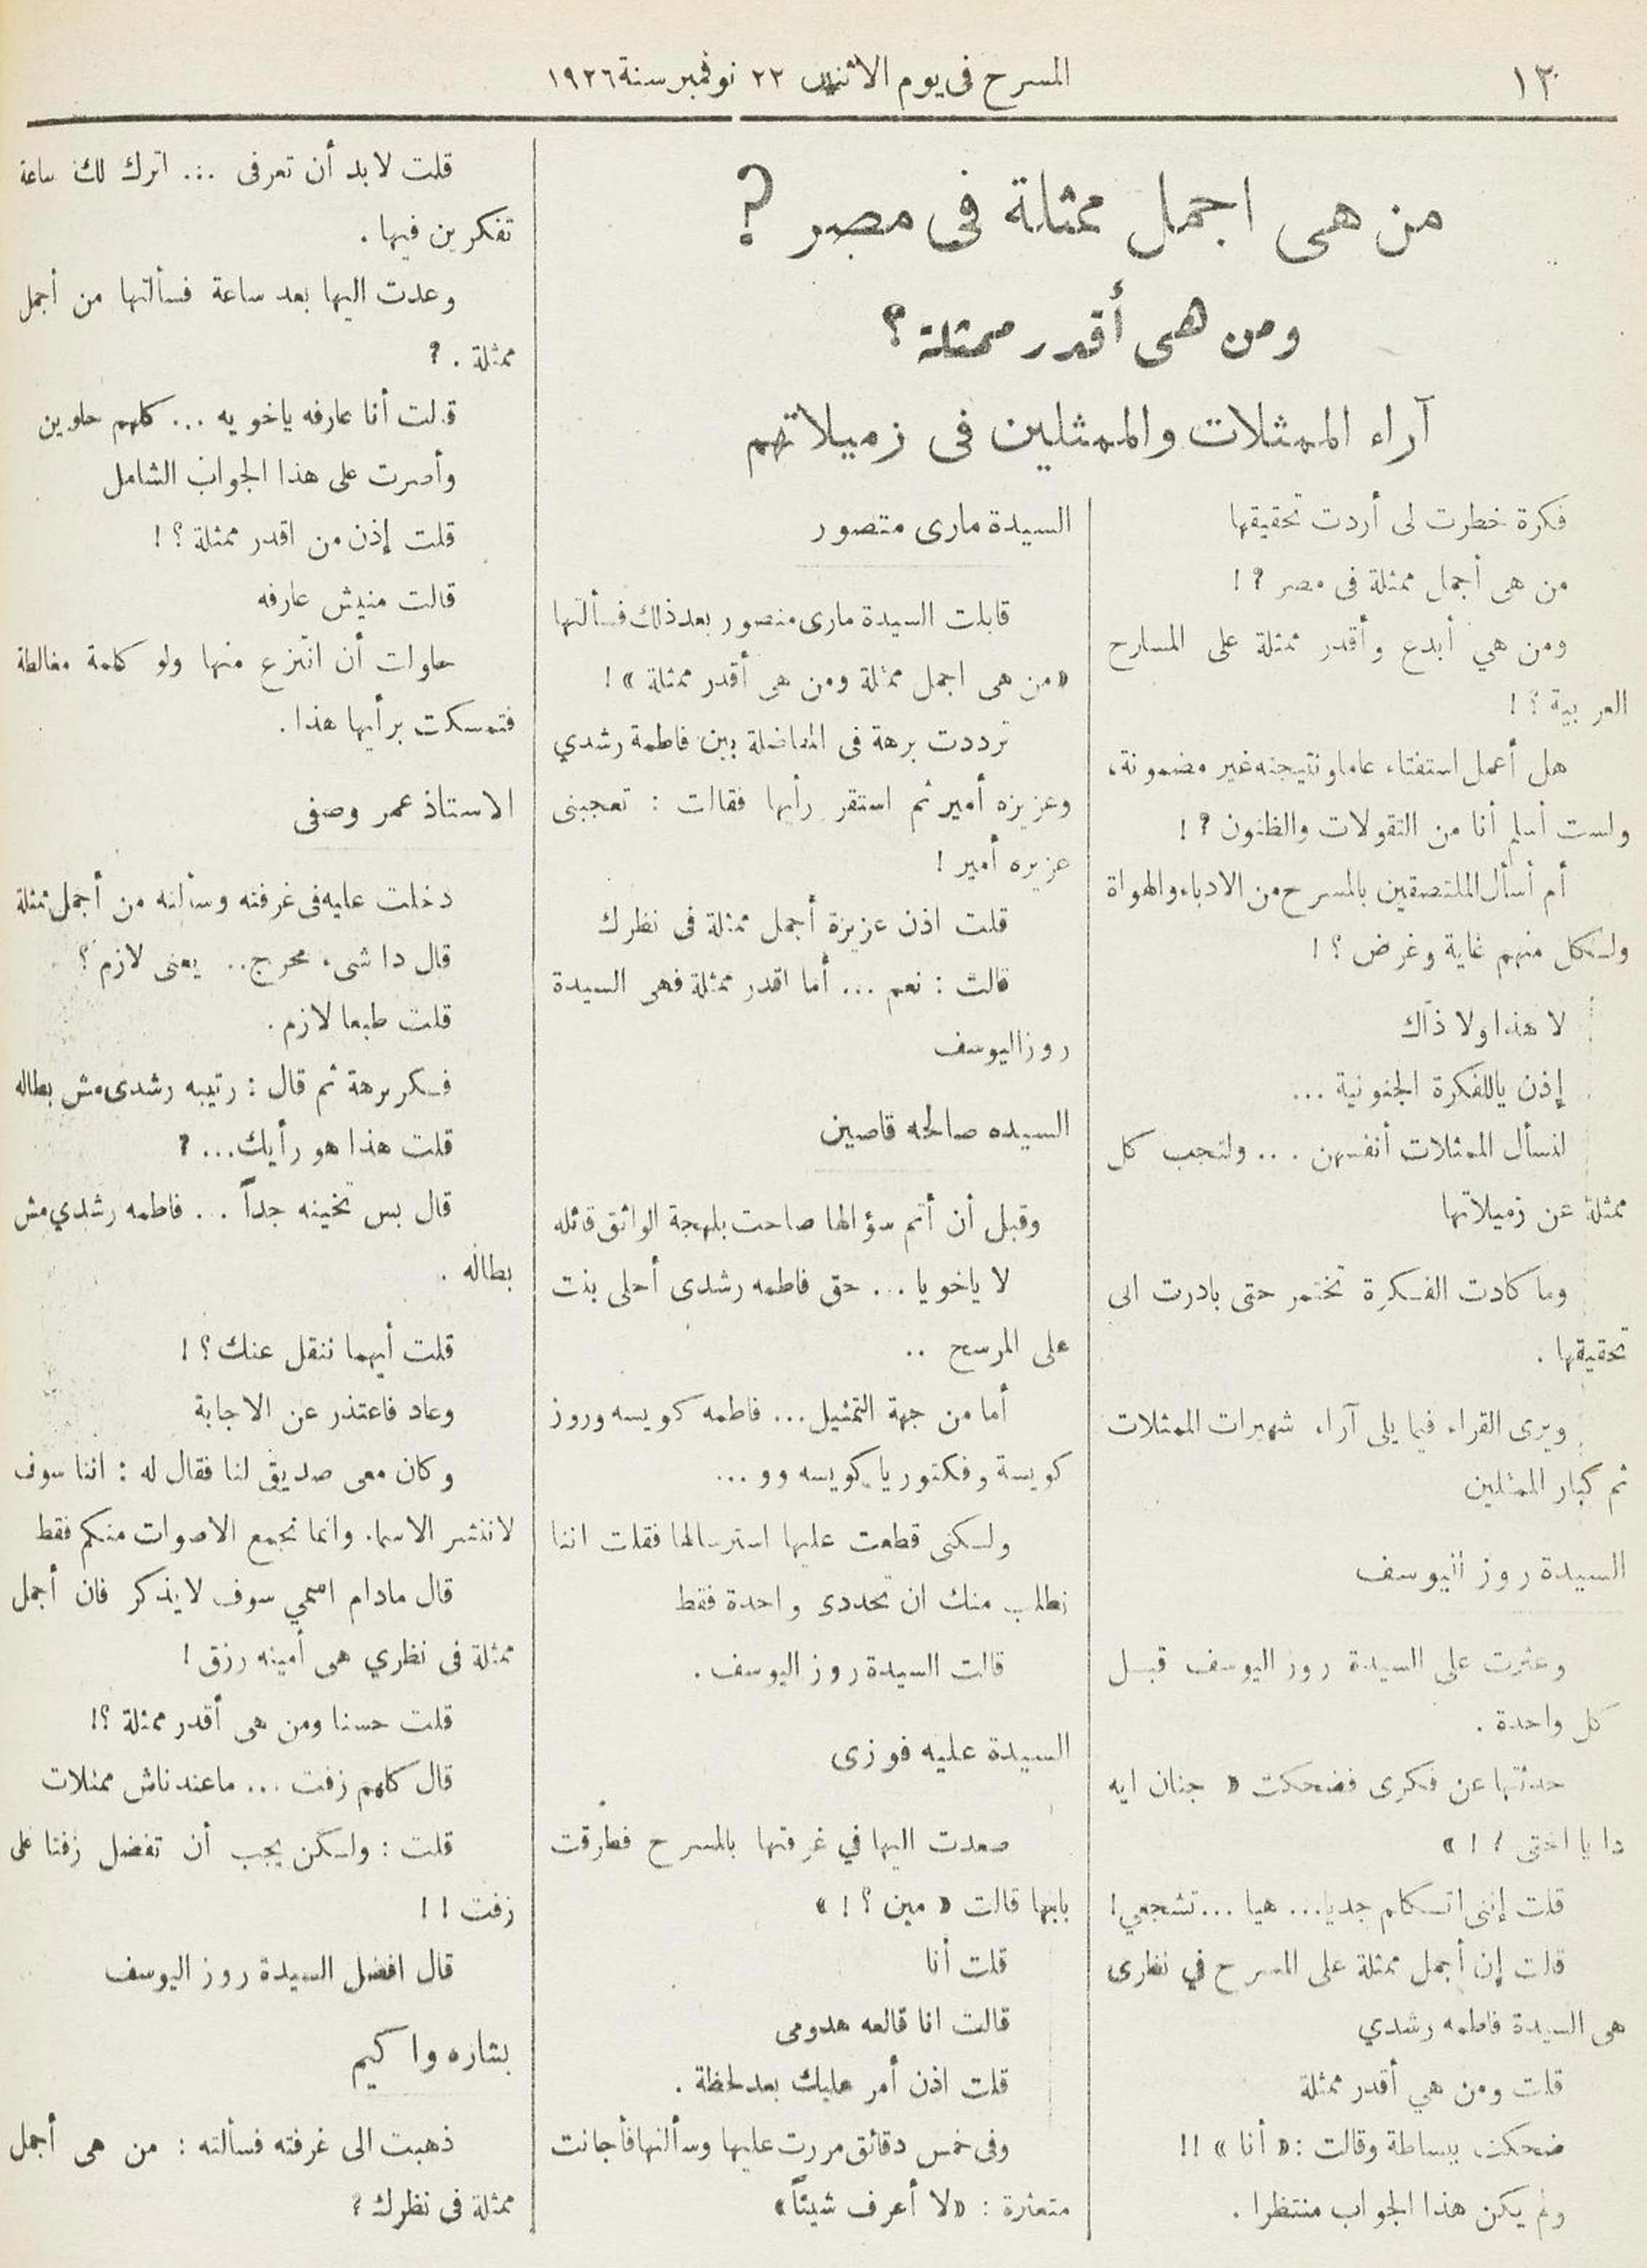 ١٣
المسرح فى يوم الاثنين ٢٢ نوفمبر سنة ١٩٢٦
من هى اجمل ممثلة فى مصر ?
ومن هى أقدر ممثلة ؟
آراء الممثلات والممثلين فى زميلاتهم
فكرة خطرت لى أردت تحقيقها
من هى أجمل ممثلة فى مصر ? !
ومن هي أبدع وأقدر ممثلة على المسارح
العربية ؟ !
هل أعمل استفتاء عاما ونتيجته غير مضمونة،
ولست أسلم أنا من التقولات والظنون ? !
أم أسأل الملتصقين بالمسرح من الادباء والهواة
ولكل منهم غاية وغرض ؟ !
لا هذا ولا ذاك
إذن ياللفكرة الجنونية ...
لنسأل الممثلات أنفسهن ... ولتجب كل
ممثلة عن زميلاتها
وما كادت الفكرة تختمر حتى بادرت الى
تحقيقها .
ويرى القراء فيما يلى آراء شهيرات الممثلات
ثم كبار الممثلين
السيدة روز اليوسف
وعثرت على السيدة روز اليوسف قبل
كل واحدة .
حدثتها عن فكرى فضحكت « جنان ايه
دا يا اختى ! ! »
قلت إننى اتكلم جديا... هيا ... تشجعي !
قالت إن أجمل ممثلة على المسرح في نظرى
هى السيدة فاطمه رشدي
قلت ومن هي أقدر ممثلة
ضحكت ببساطة وقالت : « أنا » !!
ولم يكن هذا الجواب منتظرا .
السيدة مارى منصور
قابلت السيدة مارى منصور بعد ذلك فسألتها
« من هى اجمل ممثلة ومن هى أقدر ممثلة » !
ترددت برهة فى المفاضلة بين فاطمة رشدي
وعزيزه أمير ثم استقر رأيها فقالت : تعجبنى
عزيزه أمير !
قلت اذن عزيزة أجمل ممثلة فى نظرك
قالت : نعم ... أما اقدر ممثلة فهى السيدة
روز اليوسف
السيده صالحه قاصين
وقبل أن أتم سؤالها صاحت بلهجة الواثق قائله
لا ياخويا ... حق فاطمه رشدى أحلى بنت
على المرسح ..
أما من جهة التمثيل ... فاطمه كويسه وروز
كويسة وفكتوريا كويسه وو ...
ولكنى قطعت عليها استرسالها فقلت اننا
نطلب منك ان تحددى واحدة فقط
قالت السيدة روز اليوسف .
السيدة عليه فوزى
صعدت اليها في غرفتها بالمسرح فطرقت
بابها قالت « مين ؟ ! »
قلت أنا
قالت انا قالعه هدومى
قلت اذن أمر عليك بعد لحظة .
وفى خمس دقائق مررت عليها وسألتها فأجابت
متعثرة : « لا أعرف شيئاً »
قلت لا بد أن تعرفى ... اترك لك ساعة
تفكرين فيها .
وعدت اليها بعد ساعة فسألتها من أجمل
ممثلة . ?
قالت أنا عارفه ياخويه ... كلهم حلوين
وأصرت على هذا الجواب الشامل
قلت إذن من اقدر ممثلة ؟ !
قالت منيش عارفه
حاولت أن انتزع منها ولو كلمة مغالطة
فتمسكت برأيها هذا .
الاستاذ عمر وصفى
دخلت عليه فى غرفته وسألته من أجمل ممثلة
قال دا شىء محرج .. يعنى لازم ؟
قلت طبعا لازم .
فكر برهة ثم قال : رتيبه رشدى مش بطاله
قلت هذا هو رأيك ... ?
قال بس تخينه جداً ... فاطمه رشدي مش
بطاله .
قلت أيهما ننقل عنك ؟ !
وعاد فاعتذر عن الاجابة
وكان معى صديق لنا فقال له : اننا سوف
لا ننشر الاسماء وانما نجمع الاصوات منكم فقط
قال مادام اسمي سوف لا يذكر فان أجمل
ممثلة فى نظري هى أمينه رزق !
قلت حسنا ومن هى أقدر ممثلة ؟!
قال كلهم زفت ... ماعندناش ممثلات
قلت : ولكن يجب أن تفضل زفتا على
زفت ! !
قال افضل السيدة روز اليوسف
بشاره واكيم
ذهبت الى غرفته فسألته : من هى أجمل
ممثلة فى نظرك ؟